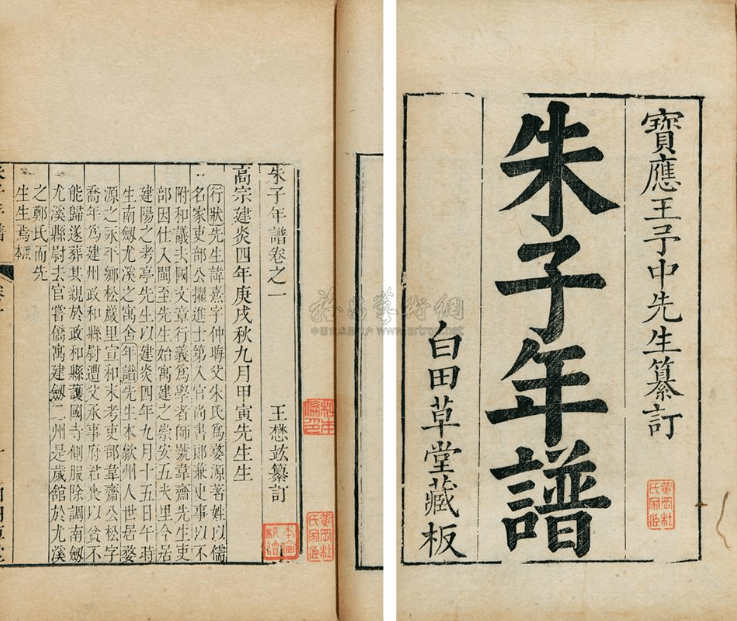 寶應王予中先生纂訂
朱子年譜
白田草堂藏板
朱子年譜卷之一
王懋竑纂訂
高宗建炎四年庚戌秋九月甲寅先生生
行狀先生諱熹字仲晦父朱氏為婺源著姓以儒
名家吏部公擢進士第入官尚書郎兼史事以不
附和議去國文章行義為學者師號韋齋先生吏
部因仕入閩至先生始寓建之崇安五夫里今居
建陽之考亭先生以建炎四年九月十五日午時
生南劔尤溪之寓舍年譜先生本歙州人世居婺
源之永平鄉松巖里宣和末考吏部韋齋公松字
喬年為建州政和縣尉遭父承事府君喪以貧不
能歸遂葬其親於政和縣護國寺側服除調南劔
尤溪縣尉去官嘗僑寓建劔二州是歲館於尤溪
之鄭氏而先
生生焉
雅昌藝術網
www.artron.net